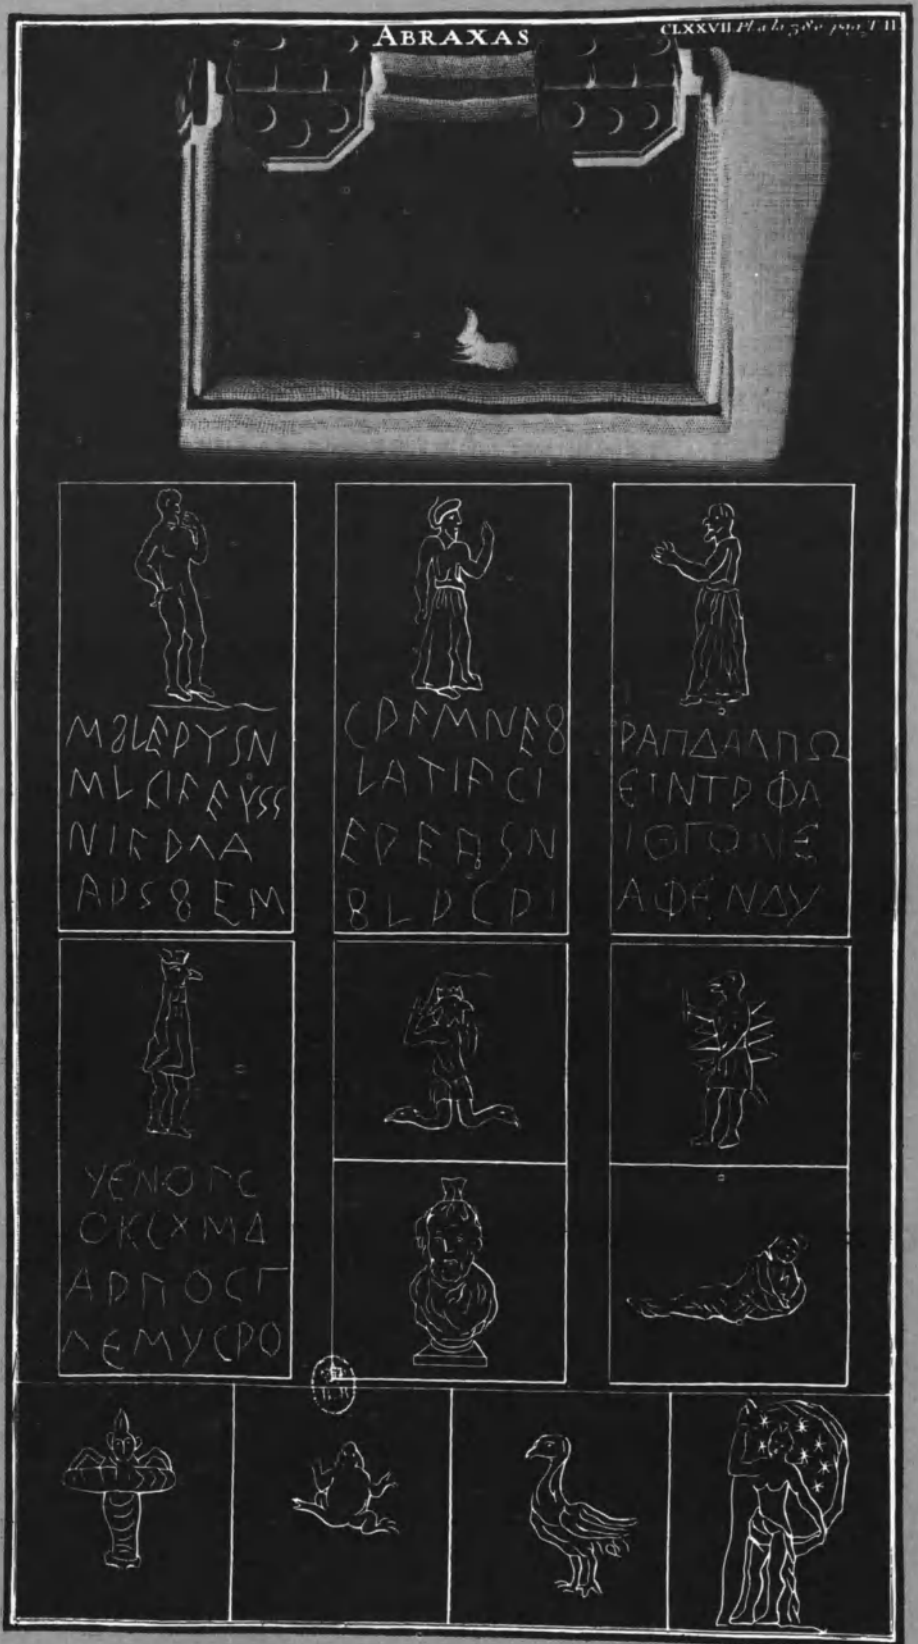 ABRAXAS
CLXXVII Pl. a la 380 pag. T. II
MȢLEDYSN
MLCIFEYSS
NIEDΛA
ADSȢEM
CDFMNEȢ
LATIFCI
EDEASN
ȢLDCDI
ΡΑΠΔΑΛΠΩ
ЄΙΝΤDΦΑ
ΙΘΓΟΙΝΞ
ΑΦЄΝΔΥ
ΥЄΝΟΓC
ΟΚCΧΜΔ
ΑDΠΟCΓ
ΛЄΜΥCΡΟ